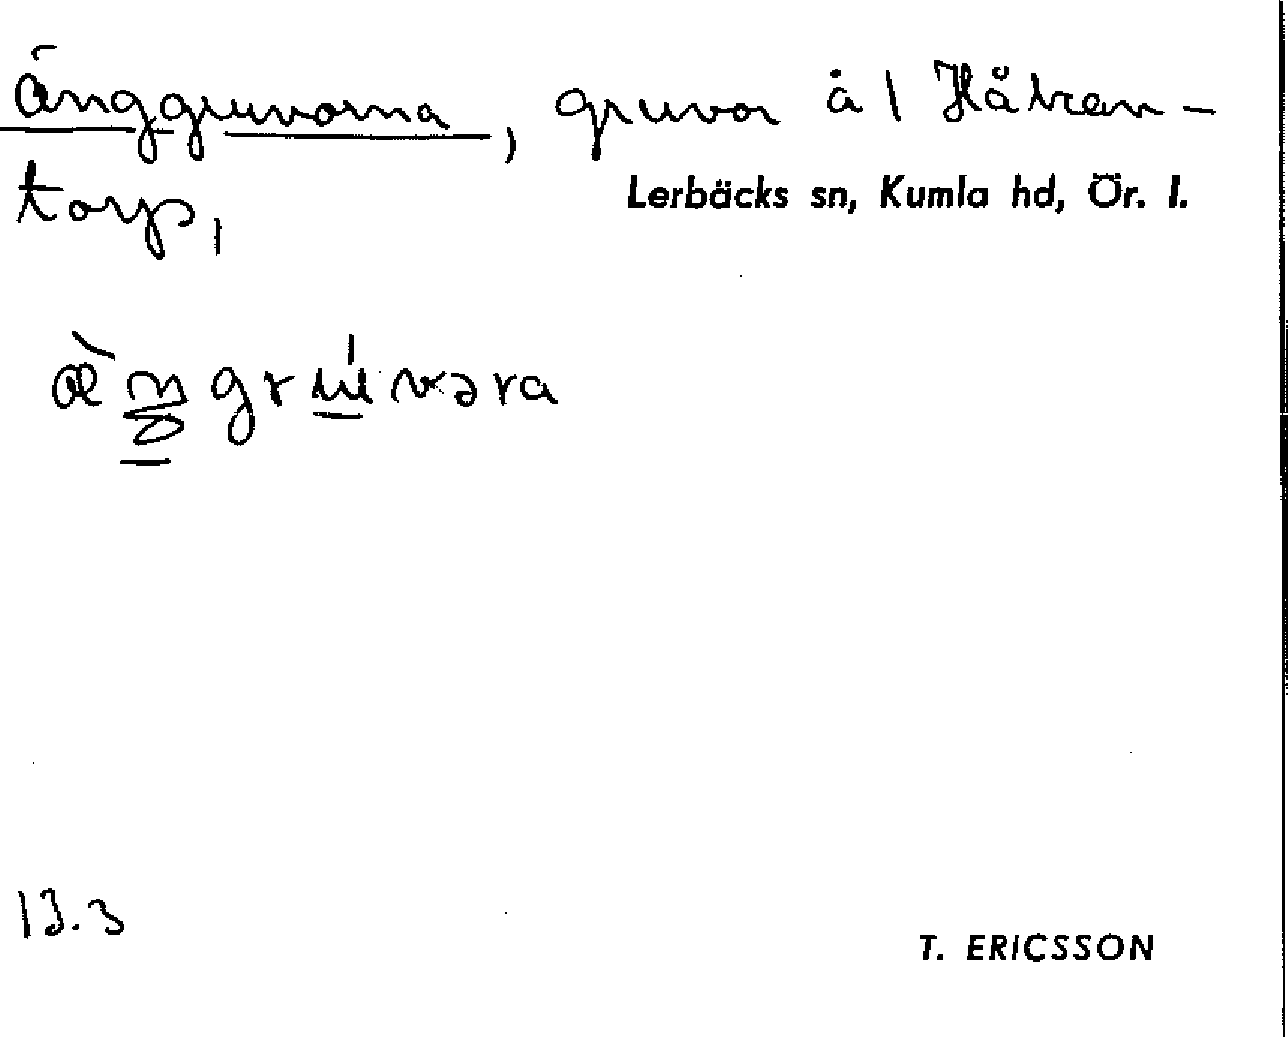 Änggruvorna, gruvor å 1 Håkran-
torp,
Lerbäcks sn, Kumla hd, Ör. l.
æ̀ŋgrúvəra
13.3
T. ERICSSON